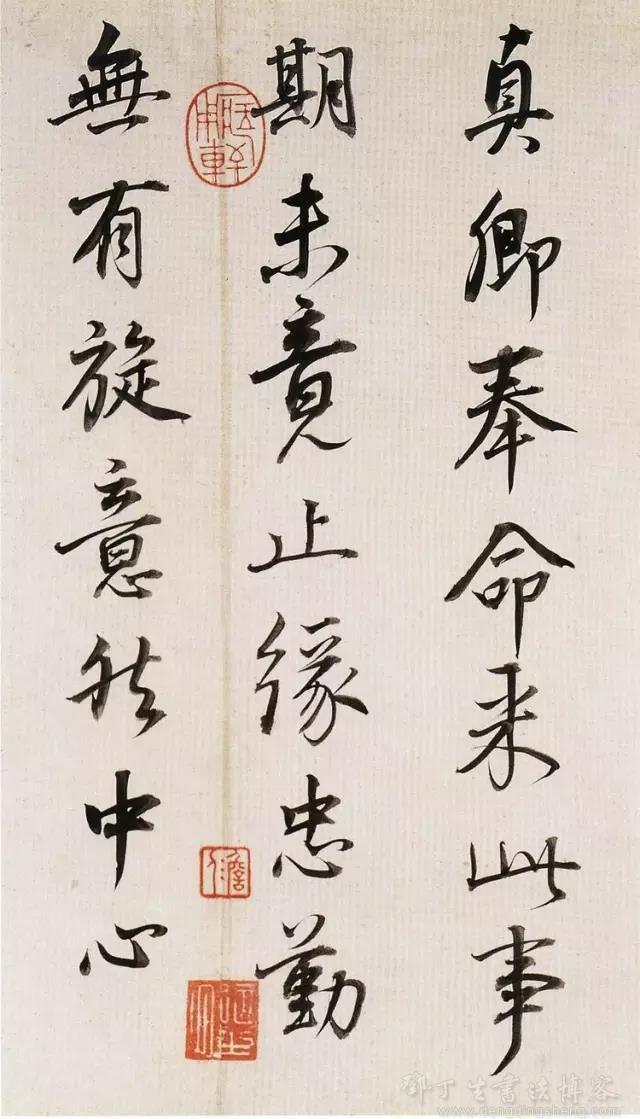 真卿奉命来此事
期未竟止緣忠勤
無有旋意然中心
鄧丁生書法博客
www.dengdingsheng.com